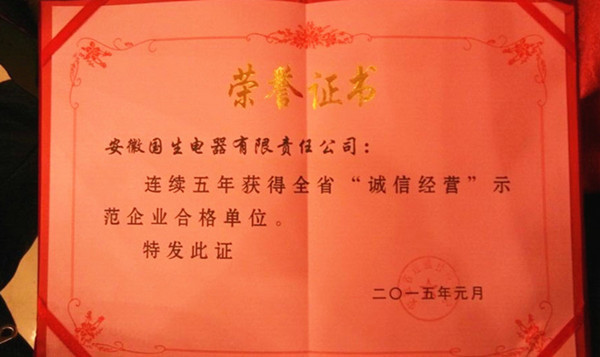 荣誉证书
安徽国生电器有限责任公司：
连续五年获得全省“诚信经营”示
范企业合格单位。
特发此证
二〇一五年元月